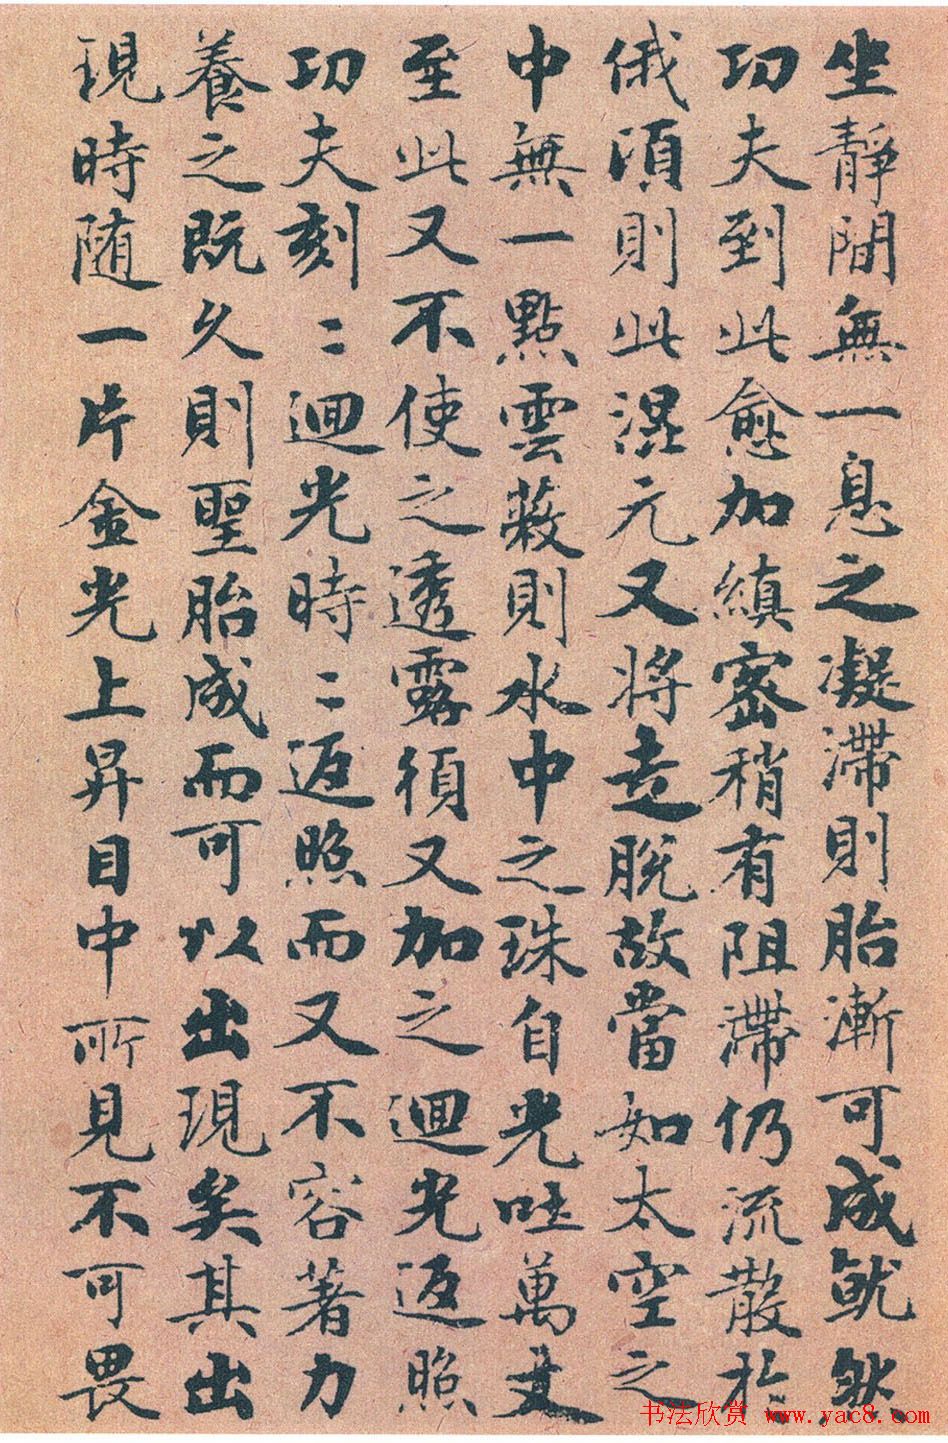 坐靜間無一息之凝滯則胎漸可成就然
功夫到此愈加縝密稍有阻滯仍流散於
俄須則此混元又將走脫故當如太空之
中無一點雲蔽則水中之珠自光吐萬丈
至此又不使之透露須又加之迴光返照
功夫刻〻迴光時〻返照而又不容著力
養之既久則聖胎成而可以出現矣其出
現時随一片金光上昇目中所見不可畏
书法欣赏 www.yac8.com